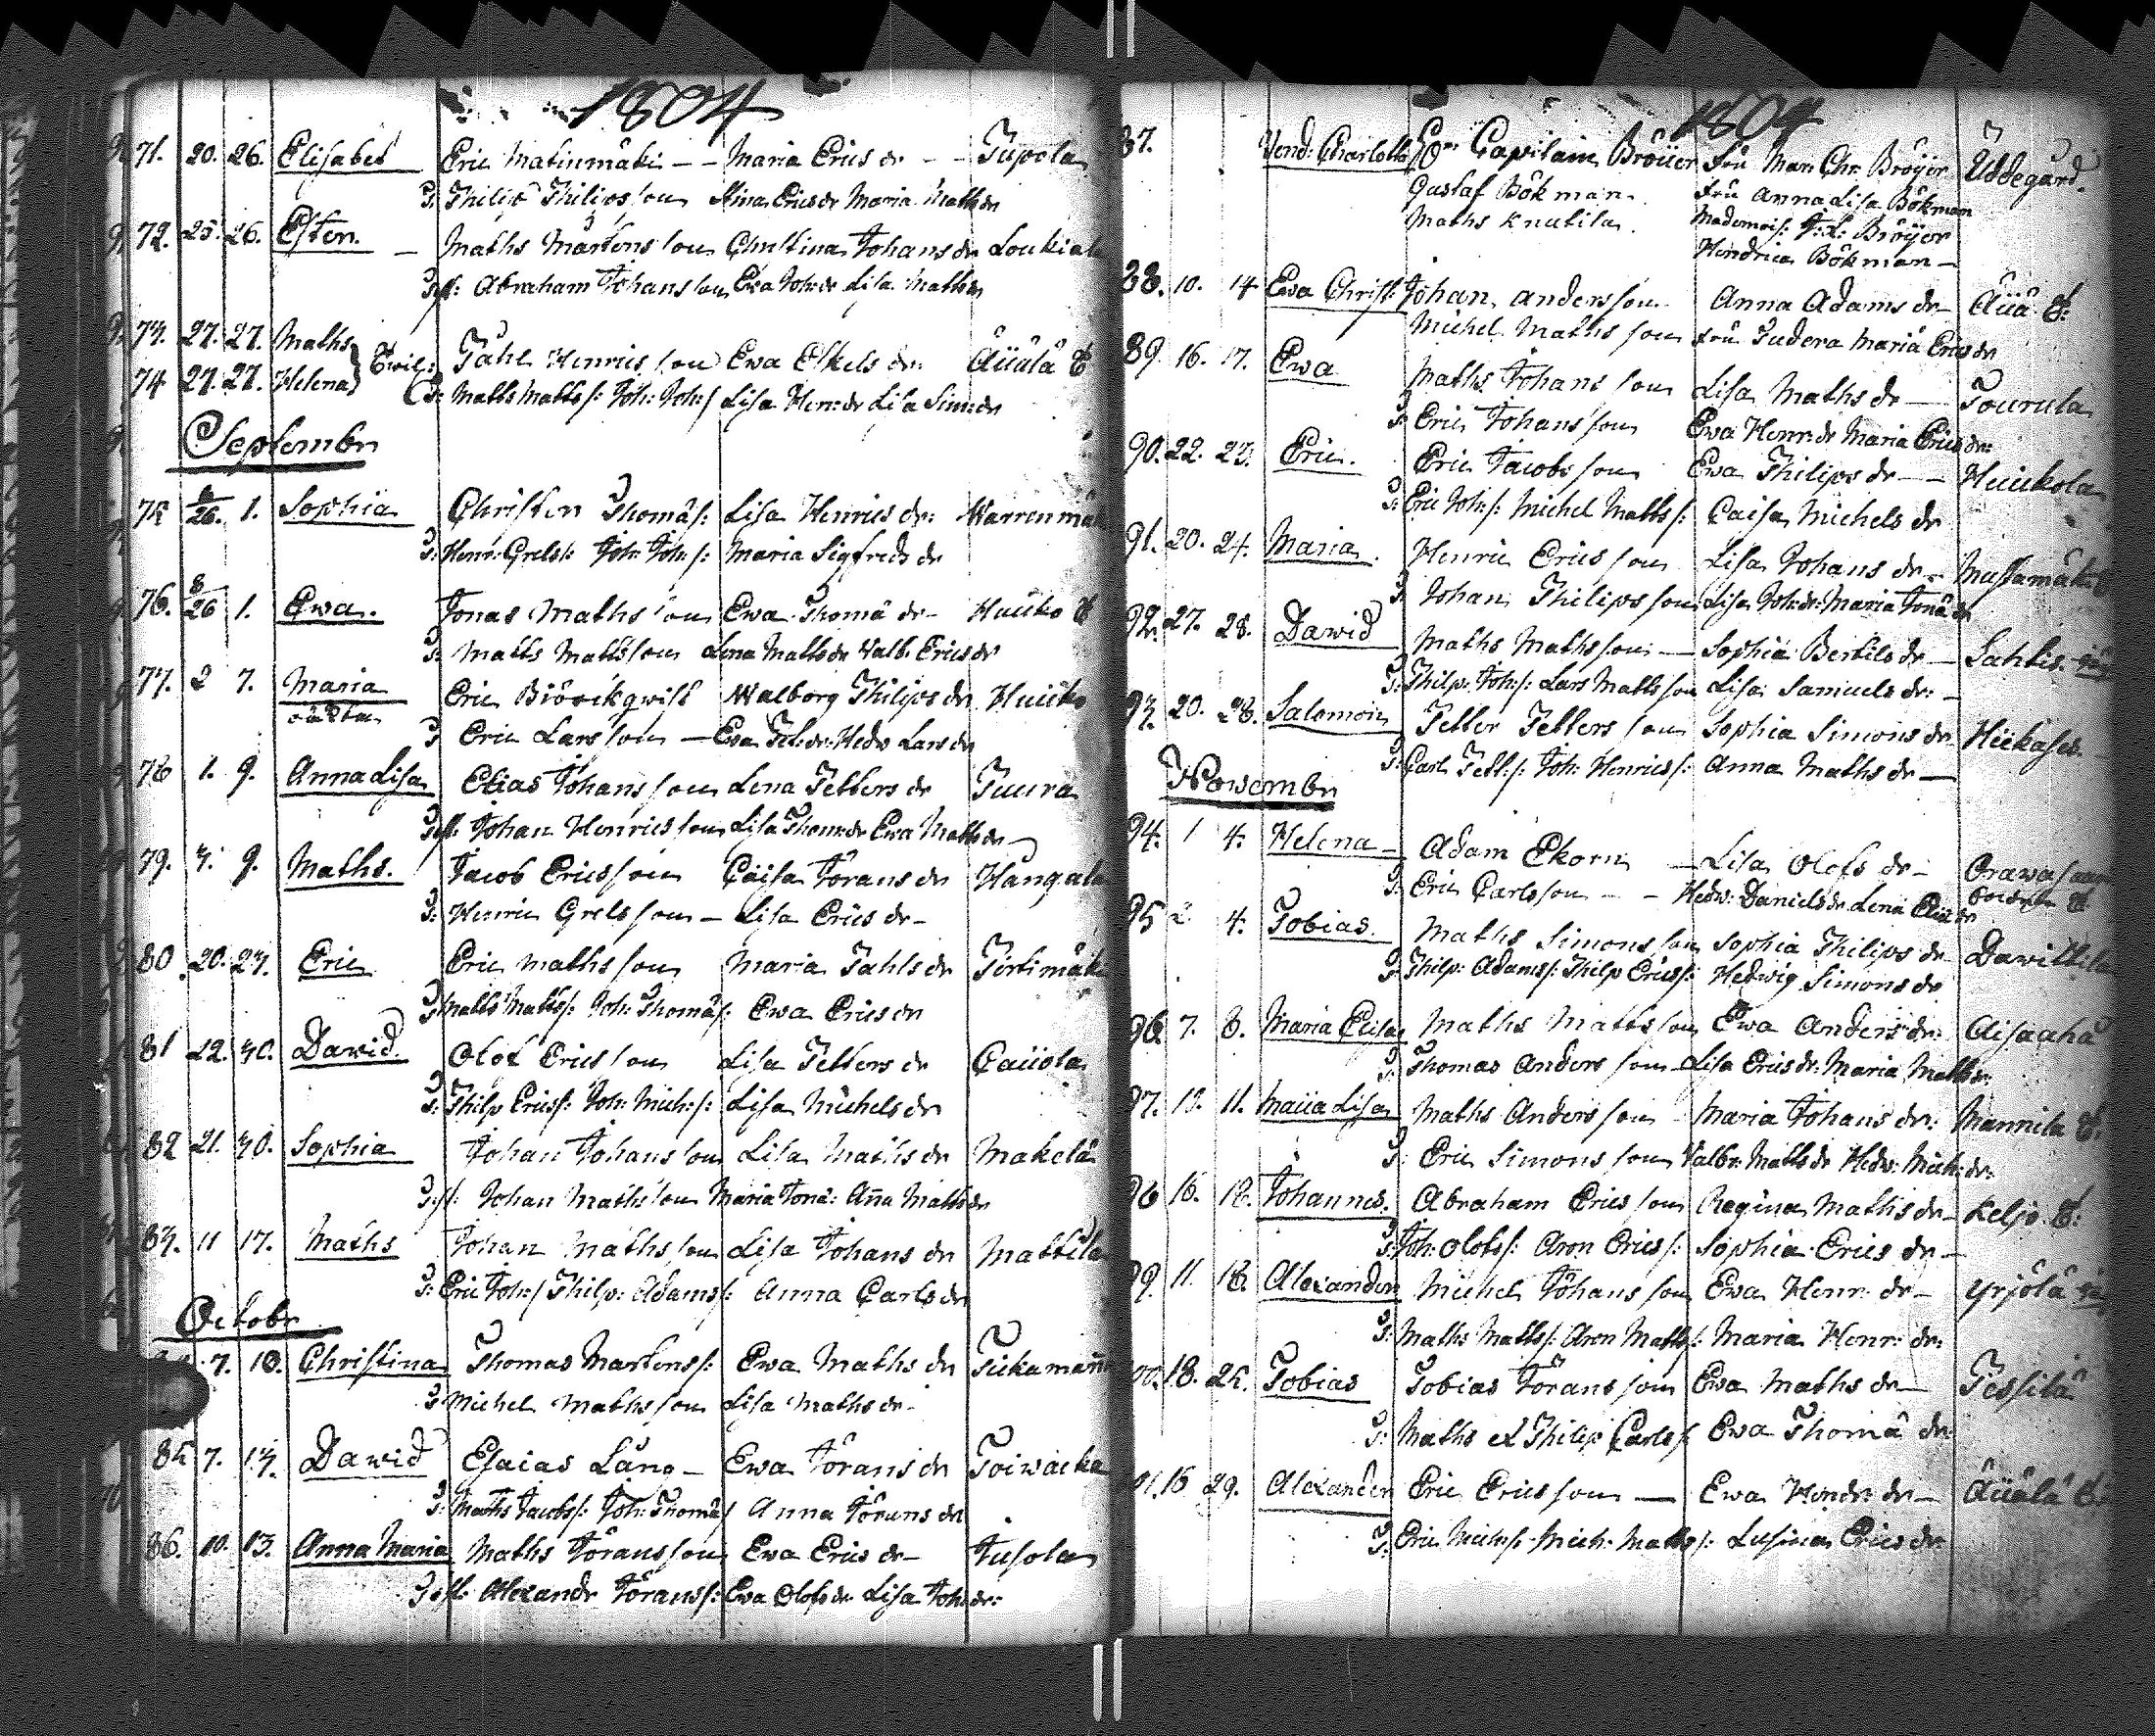 1804
71. 20. 26. Elisabet Eric Matinmäki - - Maria Erics dr - - Tupola
T. Philip Philipsson Stina Erics dr Maria Maths dr
72. 25. 26. Ester. - Maths Mårtensson Christina Johans dr Loukiala
T. ss: Abraham Johansson Ewa Joh: dr Lisa Maths dr
73. 27. 27. Maths
Twil: Påhl Henricsson Ewa Eskels dr: Äijälä
74 27. 27. Helena
T: Matts Matts s: Joh: Joh: s Lisa Henr: dr Lisa Sim: dr
Septembr
75 8/26. 1. Sophia Christer Thomæ s: Lisa Henrics dr:
T: Henr: Grels s: Joh: Joh: s: Maria Sigfreds dr
76. 8/26 1. Ewa. Jonas Mathsson Ewa Thomæ dr -
T: Matts Mattsson Lena Matts dr Valb. Erics dr
77. 2 7. Maria Eric Björckqwist Walborg Philips dr
oächta
T Eric Larsson - Ewa dr: Hedv Lars dr
78 1. 9. Anna Lisa Elias Johansson Lena Petters dr Puura
T. ss: Johan Henricsson Lisa Thom: dr Ewa Matts dr
79. 3. 9. Maths. Jacob Ericsson Caisa Jörans dr Kangala
T: Henric Grelsson - Lisa Erics dr -
80 20. 23. Eric Eric Mathsson Maria Påhls dr
T Matts Matts s: Joh: Thomæ s: Ewa Erics dr
81 22. 30. Dawid. Olof Ericsson Lisa Petters dr
T: Philp Erics s: Joh: Mich: s: Lisa Michels dr
82 21. 30. Sophia Johan Johansson Lisa Maths dr Makelä
T: ss: Johan Mathsson Maria Jonæ: Anna Matts dr
83. 11 17. Maths Johan Mathsson Lisa Johans dr Mattila
T: Eric Joh: s Philp: Adams s: Anna Carls dr
Octobr
7. 10. Christina Thomas Martens s: Ewa Maths dr
T Michel Mathsson Lisa Maths dr -
85 7. 13. Dawid Esaias Lång - Ewa Jörans dr Toiwacka
T: Maths Jacobs s: Joh: Thomæ s Anna Jörans dr
86. 10. 13. Anna Maria Maths Jöransson Ewa Erics dr - Tusola
T. ss: Alexandr Jörans s: Ewa Olofs dr Lisa Joh: dr:
1804
87. Vend: Charlotta Capitain Bröijer Fru Mar: Chr. Bröijer Uddegård.
Gustaf Bökman. Fru Anna Lisa Bökman
Maths Knutila. Mademois: Bröijer
Hendrica Bökman -
88. 10. 14 Ewa Christ: Johan Andersson Anna Adams dr
Michel Mathsson Fru Maria Erics dr
89. 16. 17. Ewa Maths Johansson Lisa Maths dr - Tourula
T Eric Johansson Ewa Henr: dr Maria Erics dr:
90. 22. 23. Eric. Eric Jacobsson Ewa Philips dr - -
T: Eric Joh: s: Michel Matts s: Caisa Michels dr
91. 20. 24. Maria. Henric Ericsson Lisa Johans dr -
T Johan Philipsson Lisa Joh: dr: Maria Jonæ dr
92. 27. 28. Dawid Maths Mathsson - Sophia Bertils dr -
T: Philp: Joh: s: Lars Mattsson Lisa Samuels dr: -
93. 20. 28. Salomon Petter Pettersson Sophia Simons dr
T: Carl Pett: s: Joh: Henrics s: Anna Maths dr -
Novembr
94. 1 4. Helena - Adam Ekorn - Lisa Olofs dr - Orawasaari
T Eric Carlsson - - Hedw: Daniels dr Lena Elis dr
95 2 4. Tobias. Maths Simonsson Sophia Philips dr
T: Philp: Adams s: Philp Erics s: Hedwig Simons dr
96 7. 8. Maria Elisa Maths Mattsson Ewa Anders dr: Aisaaha
T: Thomas Andersson - Lisa Erics dr: Maria Matts dr:
97. 10. 11. Maija Lisa Maths Andersson Maria Johans dr: Mannila
T: Eric Simonsson Valbr: Matts dr Hedw: Mich: dr:
98 16. 18. Johannes. Abraham Ericsson Regina Maths dr - Keljo
T: Joh: Olofs s: Aron Erics s: Sophia Erics dr -
99. 11. 18. Alexander Michel Johansson Ewa Henr: dr - Yrjölä
T: Maths Matts s: Aron Matts s: Maria Henr: dr:
100. 18. 25. Tobias Tobias Jöransson Ewa Maths dr -
T: Maths et Philip Carls s Ewa Thomæ dr
101. 16 29. Alexander Eric Ericsson - Ewa Hendr: dr - Äijälä
T: Eric Mich: s: Mich: Matts s: Lusina Erics dr